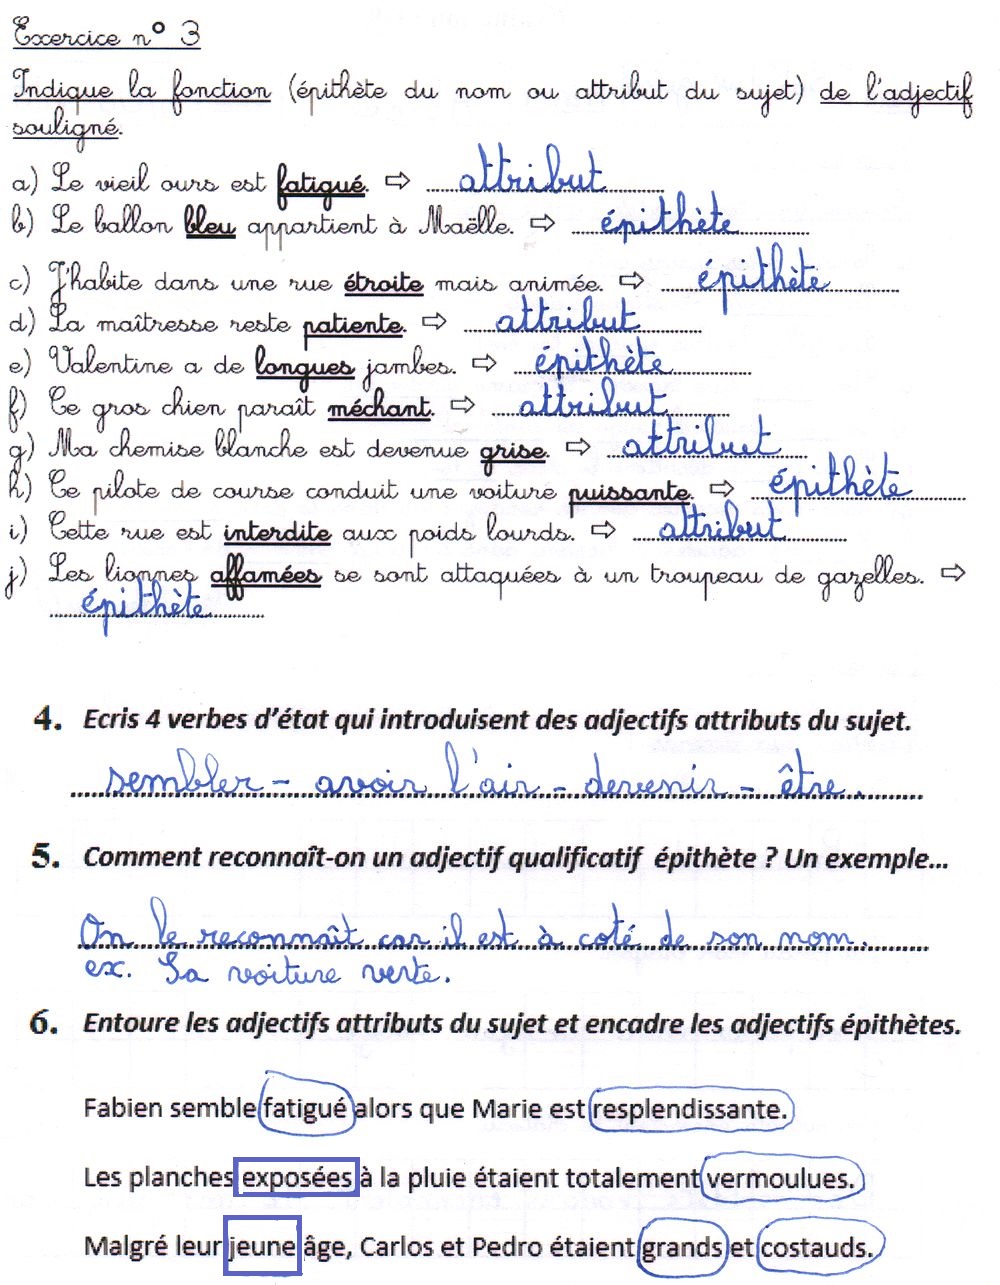 Exercice n° 3
Indique la fonction (épithète du nom ou attribut du sujet) de l'adjectif
souligné.
a) Le vieil ours est fatigué. ⇨ attribut
b) Le ballon bleu appartient à Maëlle. ⇨ épithète
c) J'habite dans une rue étroite mais animée. ⇨ épithète
d) La maîtresse reste patiente. ⇨ attribut
e) Valentine a de longues jambes. ⇨ épithète
f) Ce gros chien paraît méchant. ⇨ attribut
g) Ma chemise blanche est devenue grise. ⇨ attribuet
h) Ce pilote de course conduit une voiture puissante. ⇨ épithète
i) Cette rue est interdite aux poids lourds. ⇨ attribut
j) Les lionnes affamées se sont attaquées à un troupeau de gazelles. ⇨
épithète
4. Ecris 4 verbes d'état qui introduisent des adjectifs attributs du sujet.
sembler - avoir l'air - devenir - être.
5. Comment reconnaît-on un adjectif qualificatif épithète ? Un exemple...
On le reconnaît car il est à coté de son nom.
ex. La voiture verte.
6. Entoure les adjectifs attributs du sujet et encadre les adjectifs épithètes.
Fabien semble fatigué alors que Marie est resplendissante.
Les planches exposées à la pluie étaient totalement vermoulues.
Malgré leur jeune âge, Carlos et Pedro étaient grands et costauds.